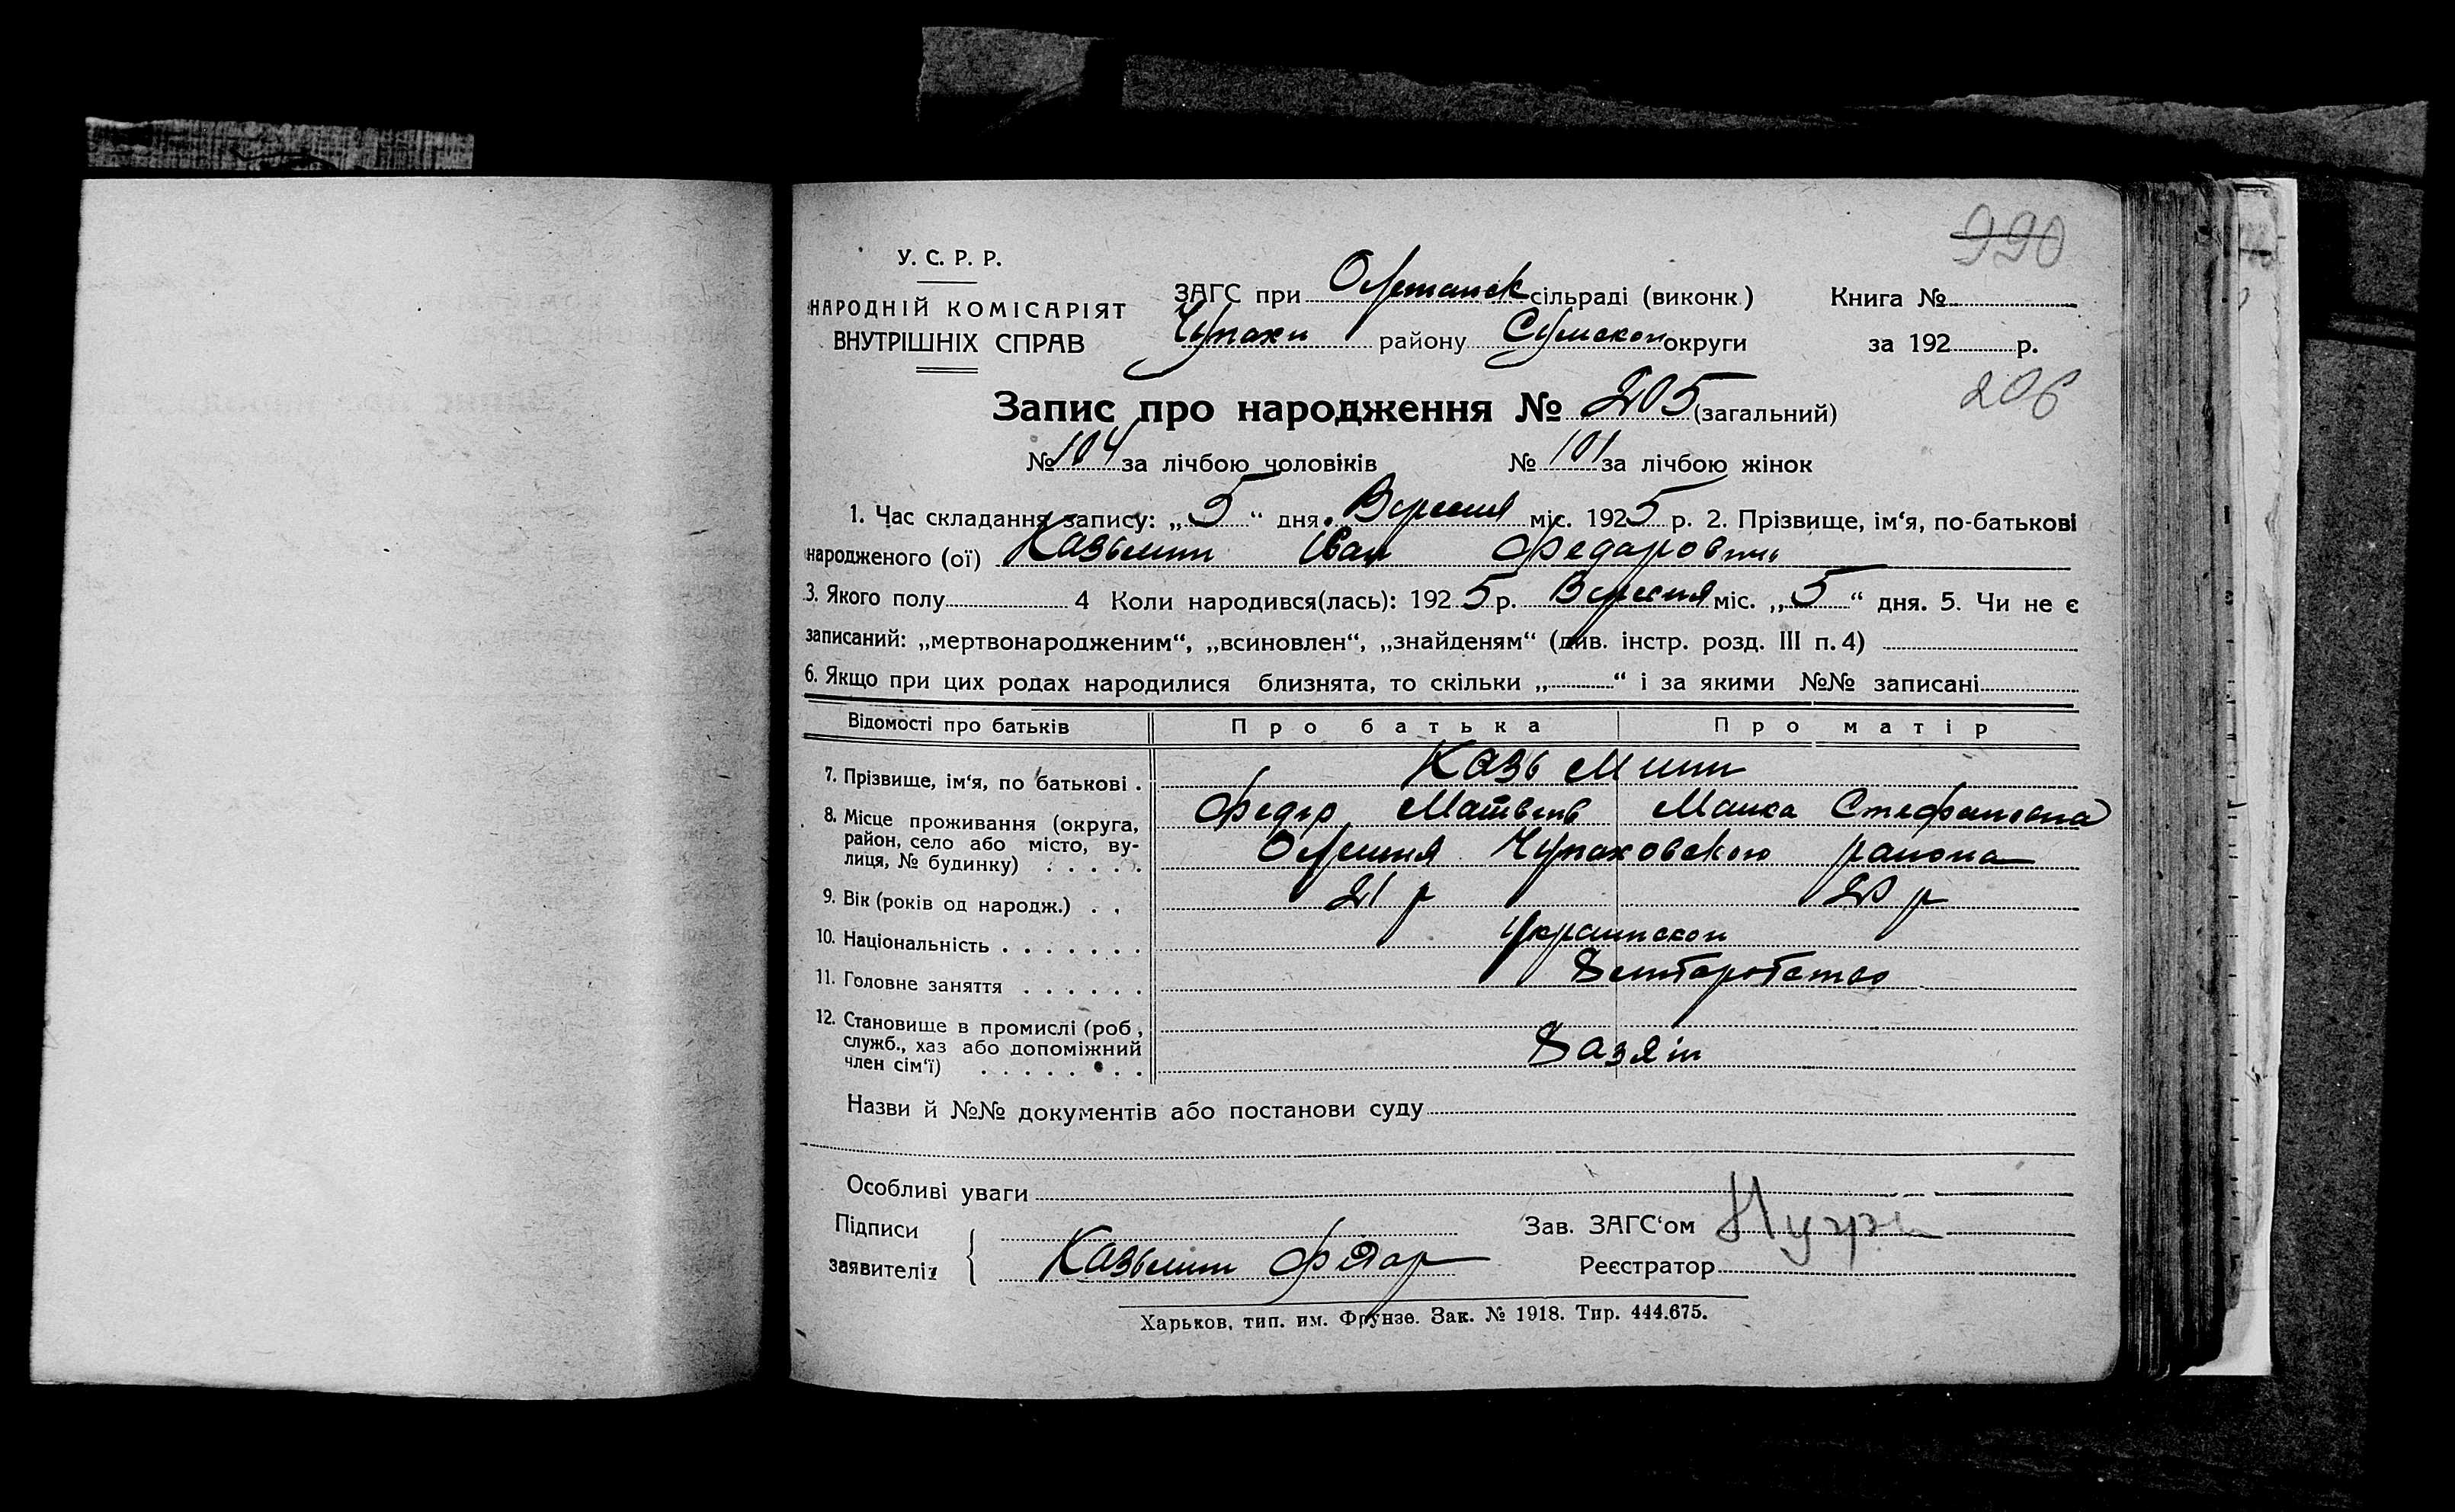 990
У. С. Р. Р.
НАРОДНІЙ КОМІСАРІЯТ
ВНУТРІШНІХ СПРАВ
ЗАГС при сільраді (виконк.) Книга №
Чупахи району Сумскои округи за 192 р.
206
Запис про народження № 205 (загальний)
№ 104 за лічбою чоловіків № 101 за лічбою жінок
1. Час складання запису: „5“ дня Вересня міс. 1925 р. 2. Прізвище, ім‘я, по-батькові
народженого (ої) Казьмин Іван Федарович
3. Якого полу 4 Коли народився(лась): 1925 р. Вересня міс. „5“ дня. 5. Чи не є
записаний: „мертвонародженим“, „всиновлен“, „знайденям“ (див. інстр. розд. III п. 4)
6. Якщо при цих родах народилися близнята, то скільки „ “ і за якими №№ записані
Відомості про батьків Про батька Про матір
7. Прізвище, ім‘я, по батькові . Казьмин
Федір Матвеев Стефановна
8. Місце проживання (округа, район, село або місто, вулиця, № будинку) . . . . . Олешня Чупаховского района
9. Вік (років од народж.) . . 21 р 20 р
10. Національність . . . . . . . Украинскои
11. Головне заняття . . . . . .
12. Становище в промислі (роб., служб., хаз або допоміжний член сім‘ї) . . . . . . . .
Назви й №№ документів або постанови суду
Особливі уваги
Підписи
заявителів { Казьмин Федар
Зав. ЗАГС‘ом
Реєстратор
Харьков, тип. им. Фрунзе. Зак. № 1918. Тир. 444.675.